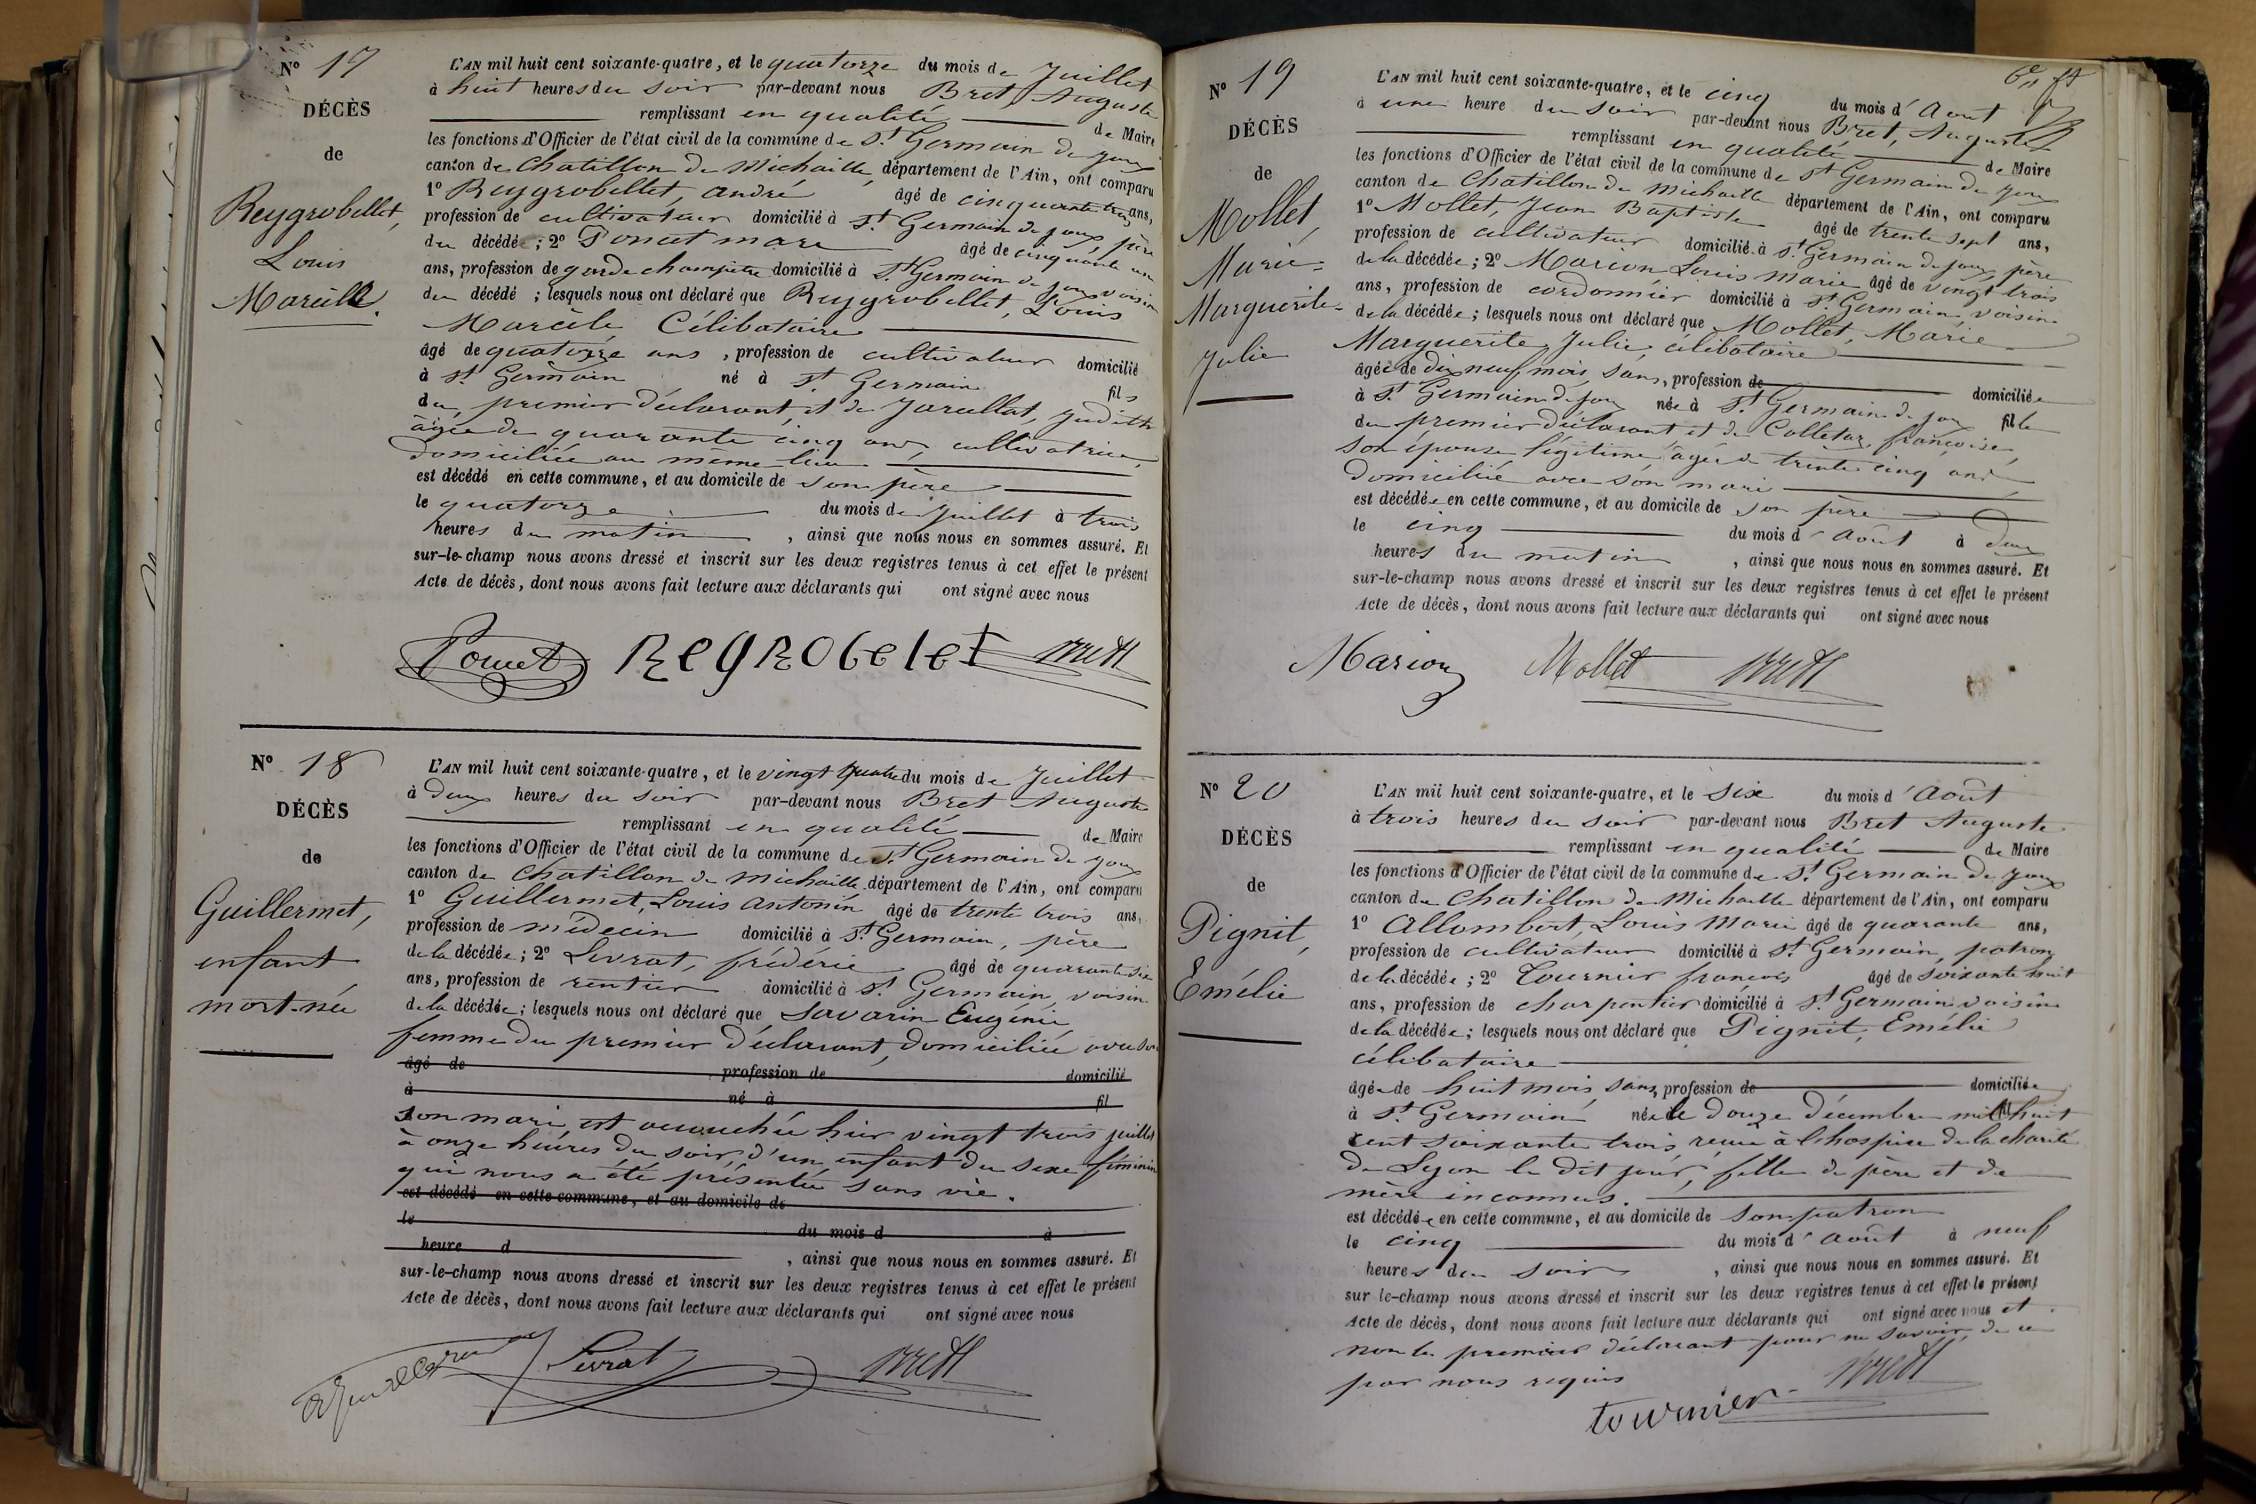 N° 17
DÉCÈS
de
Reygrobellet,
Louis
Marcille.
L'AN mil huit cent soixante-quatre, et le quatorze du mois de Juillet
à huit heures du soir par-devant nous Bret Auguste
remplissant en qualité de Maire
les fonctions d'Officier de l'état civil de la commune de St Germain de joux
canton de Chatillon de Michaille, département de l'Ain, ont comparu
1° Reygrobellet, andré âgé de cinquante trois ans,
profession de cultivateur domicilié à St Germain de joux père
du décédé ; 2° Poncet marc âgé de cinquante un
ans, profession de garde champêtre domicilié à St Germain de joux voisin
du décédé ; lesquels nous ont déclaré que Reygrobellet, Louis
Marcile Célibataire
âgé de quatorze ans, profession de cultivateur domicilié
à St Germain né à St Germain fils
du premier déclarant, et de Jacullat, Judith
âgée de quarante cinq ans, cultivatrice,
domiciliée au même lieu
est décédé en cette commune, et au domicile de son père
le quatorze du mois de juillet à trois
heures du matin, ainsi que nous nous en sommes assuré. Et
sur-le-champ nous avons dressé et inscrit sur les deux registres tenus à cet effet le présent
Acte de décès, dont nous avons fait lecture aux déclarants qui ont signé avec nous
Poncet Regrobelet Bret
N° 18
DÉCÈS
de
Guillermet,
enfant
mort-née
L'AN mil huit cent soixante-quatre, et le vingt quatre du mois de Juillet
à deux heures du soir par-devant nous Bret Auguste
remplissant en qualité de Maire
les fonctions d'Officier de l'état civil de la commune de St Germain de joux
canton de Chatillon de Michaille département de l'Ain, ont comparu
1° Guillermet, Louis Antonin âgé de trente trois ans,
profession de médecin domicilié à St Germain, père
de la décédée ; 2° Livrat, fréderic âgé de quarante six
ans, profession de rentier domicilié à St Germain, voisin
de la décédée ; lesquels nous ont déclaré que Savarin Eugénie
femme du premier déclarant, domiciliée avec son
âgé de profession de domicilié
à né à fil
son mari est accouchée hier vingt trois juillet
à onze heures du soir d'un enfant du sexe féminin
qui nous a été présentée sans vie.
est décédé en cette commune, et au domicile de
le du mois d à
heure d , ainsi que nous nous en sommes assuré. Et
sur-le-champ nous avons dressé et inscrit sur les deux registres tenus à cet effet le présent
Acte de décès, dont nous avons fait lecture aux déclarants qui ont signé avec nous
Livrat Bret
N° 19
DÉCÈS
de
Mollet,
Marie
Marguerite
Julie
L'AN mil huit cent soixante-quatre, et le cinq du mois d'Aout
à une heure du soir par-devant nous Bret, Auguste
remplissant en qualité de Maire
les fonctions d'Officier de l'état civil de la commune de St Germain de joux
canton de Chatillon de Michaille département de l'Ain, ont comparu
1° Mollet, Jean Baptiste âgé de trente sept ans,
profession de cultivateur domicilié à St Germain de joux père
de la décédée ; 2° Marion Louis marie âgé de vingt trois
ans, profession de cordonnier domicilié à St Germain voisin
de la décédée ; lesquels nous ont déclaré que Mollet, Marie
Marguerite Julie, célibataire
âgée de dix neuf mois, sans, profession de domiciliée
à St Germain de joux née à St Germain de joux fille
du premier déclarant et de Colletaz, françoise,
son épouse légitime agée de trente cinq ans,
domiciliée avec son mari
est décédée en cette commune, et au domicile de son père
le cinq du mois d'Aout à deux
heures du matin, ainsi que nous nous en sommes assuré. Et
sur-le-champ nous avons dressé et inscrit sur les deux registres tenus à cet effet le présent
Acte de décès, dont nous avons fait lecture aux déclarants qui ont signé avec nous
Marion Mollet Bret
N° 20
DÉCÈS
de
Pignit,
Emélie
L'AN mil huit cent soixante-quatre, et le six du mois d'Août
à trois heures du soir par-devant nous Bret Auguste
remplissant en qualité de Maire
les fonctions d'Officier de l'état civil de la commune de St Germain de joux
canton de Chatillon de Michaille département de l'Ain, ont comparu
1° Allombert, Louis Marie âgé de quarante ans,
profession de cultivateur domicilié à St Germain, patron
de la décédée ; 2° Tournier françois âgé de soixante huit
ans, profession de charpentier domicilié à St Germain voisin
de la décédée ; lesquels nous ont déclaré que Pignit, Emélie
célibataire
âgée de huit mois, sans, profession de domiciliée
à St Germain née le douze décembre mil huit
cent soixante trois, reçue à l'hospice de la charité
de Lyon le dit jour, fille de père et de
mère inconnus.
est décédée en cette commune, et au domicile de son patron
le cinq du mois d'Août à neuf
heures du soir, ainsi que nous nous en sommes assuré. Et
sur le-champ nous avons dressé et inscrit sur les deux registres tenus à cet effet le présent
Acte de décès, dont nous avons fait lecture aux déclarants qui ont signé avec nous et
non le premier déclarant pour ne savoir, de ce
par nous requis
tournier Bret